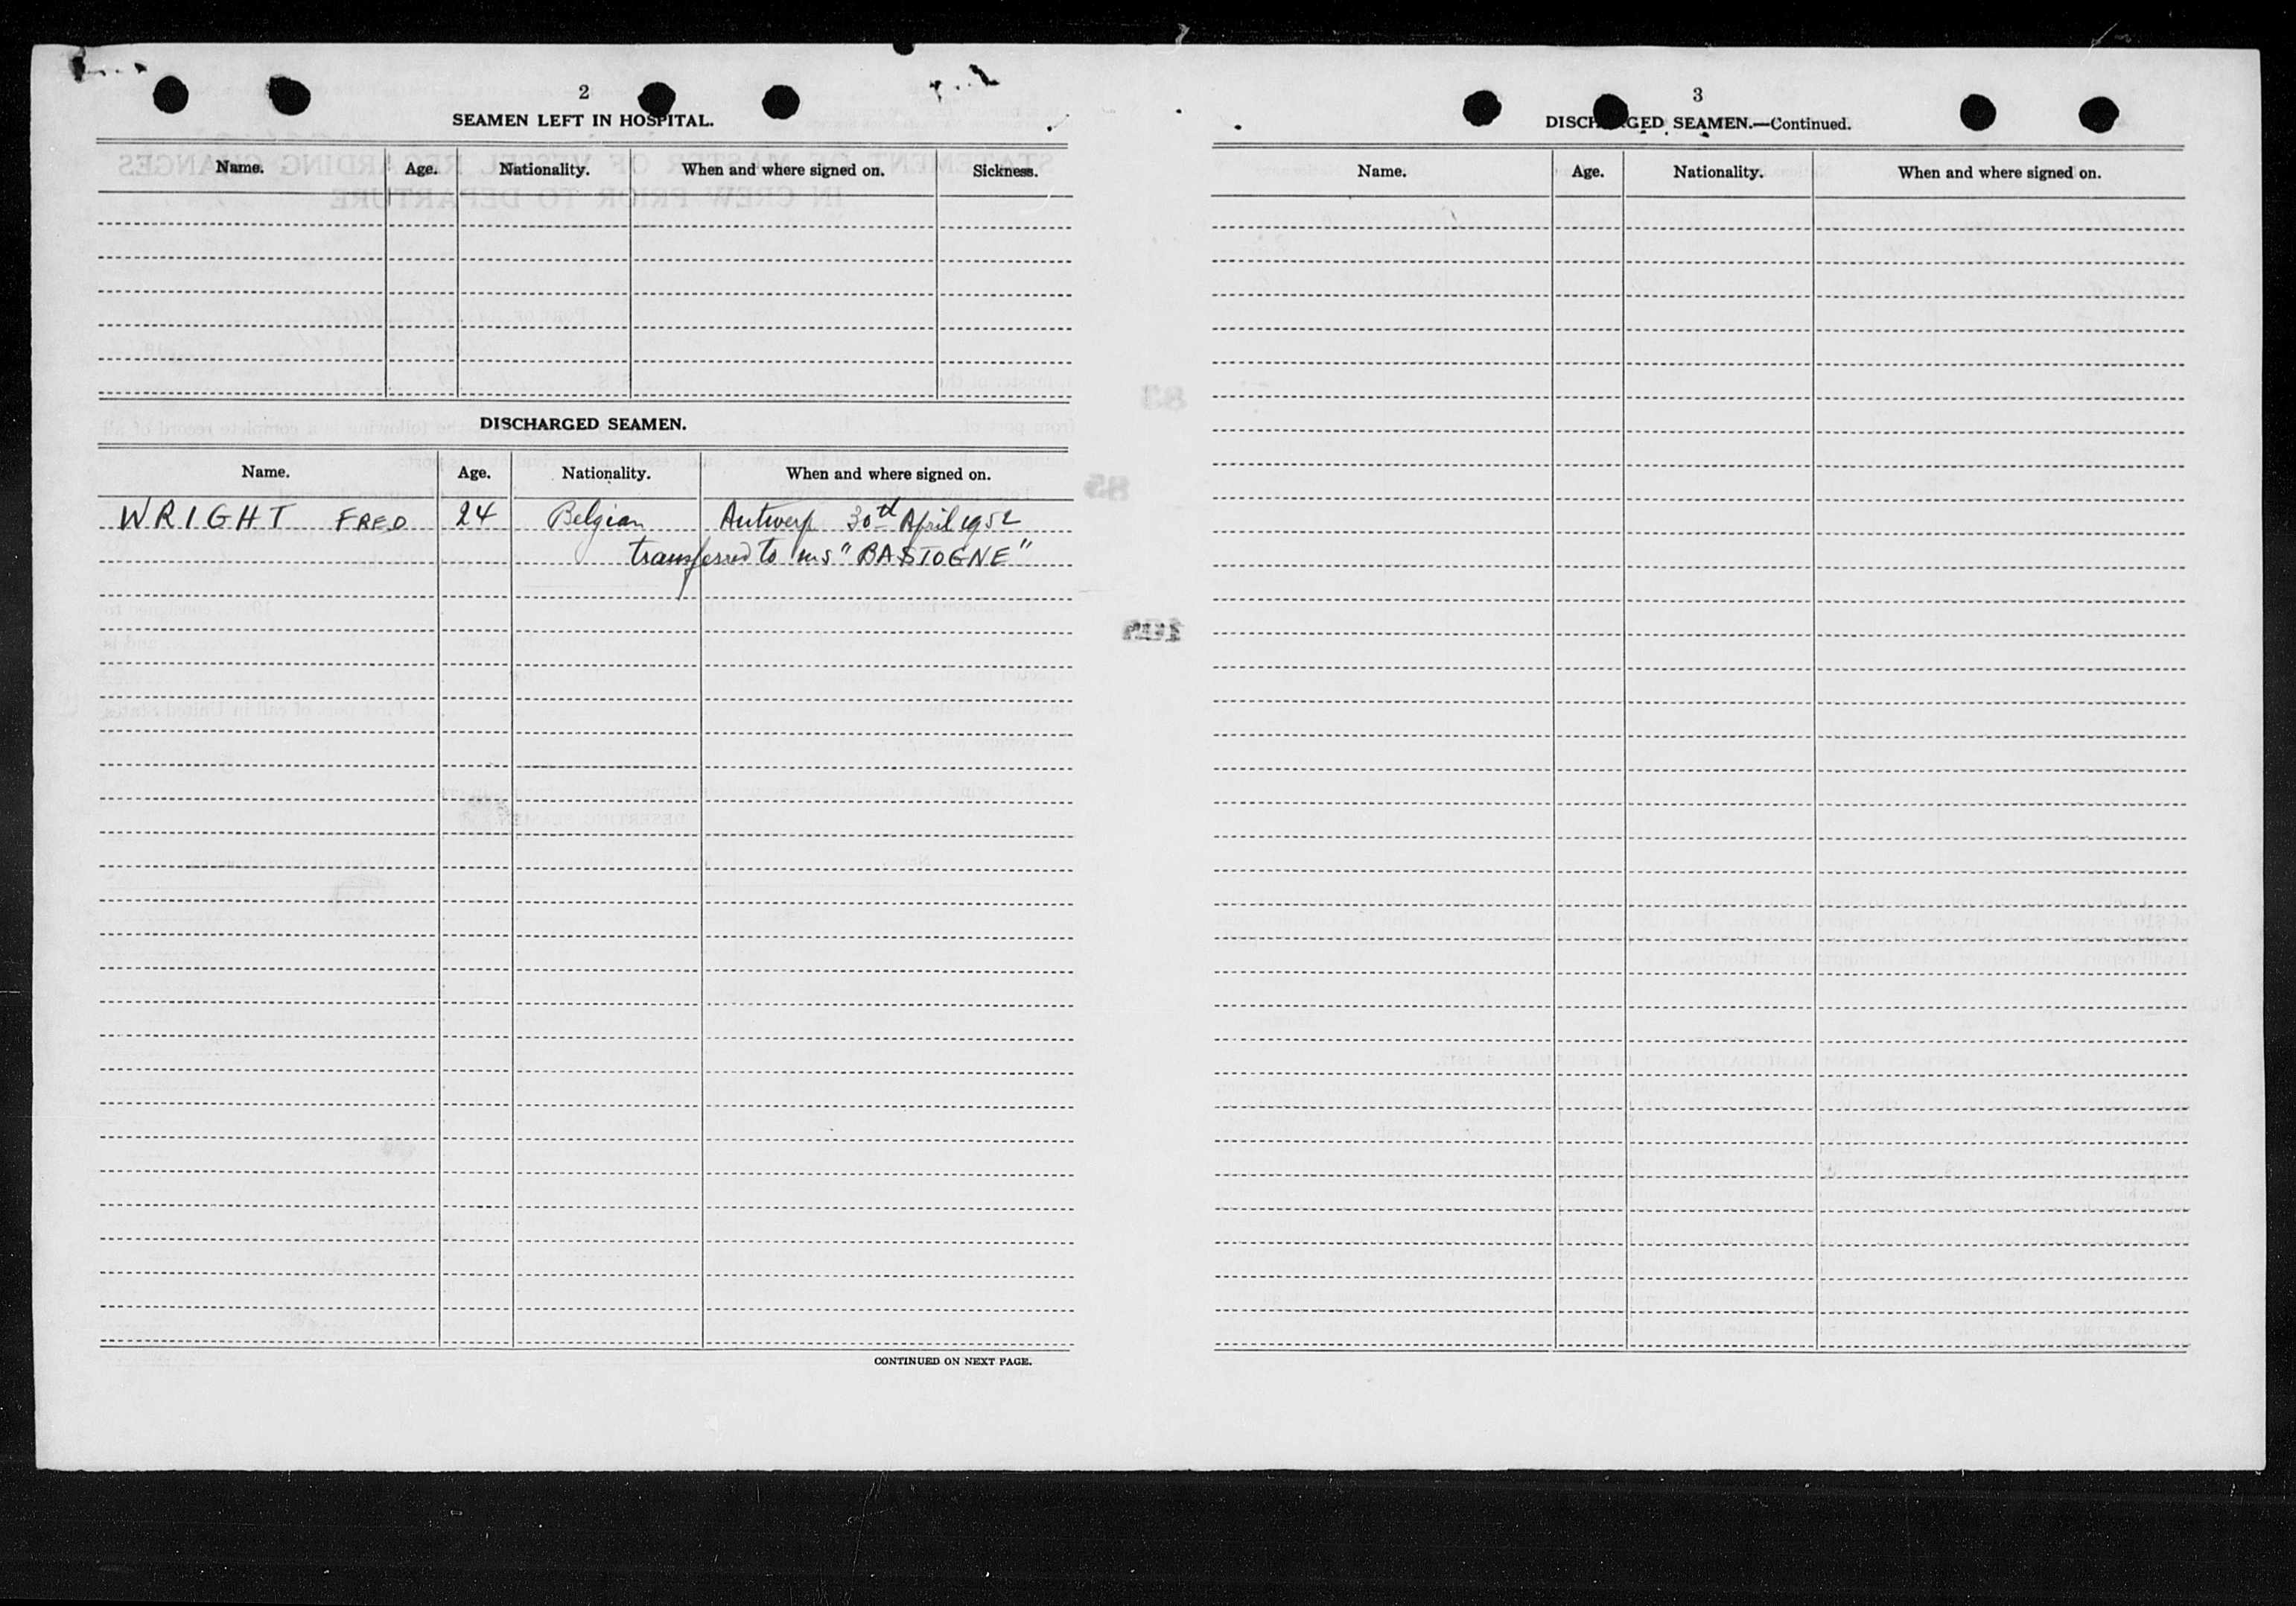 2
SEAMEN LEFT IN HOSPITAL.
Name. Age. Nationality. When and where signed on. Sickness.
DISCHARGED SEAMEN.
Name. Age. Nationality. When and where signed on.
WRIGHT FRED 24 Belgian Antwerp 30th April 1952
transferred to ms "BASTOGNE"
CONTINUED ON NEXT PAGE.
3
DISCHARGED SEAMEN.—Continued.
Name. Age. Nationality. When and where signed on.